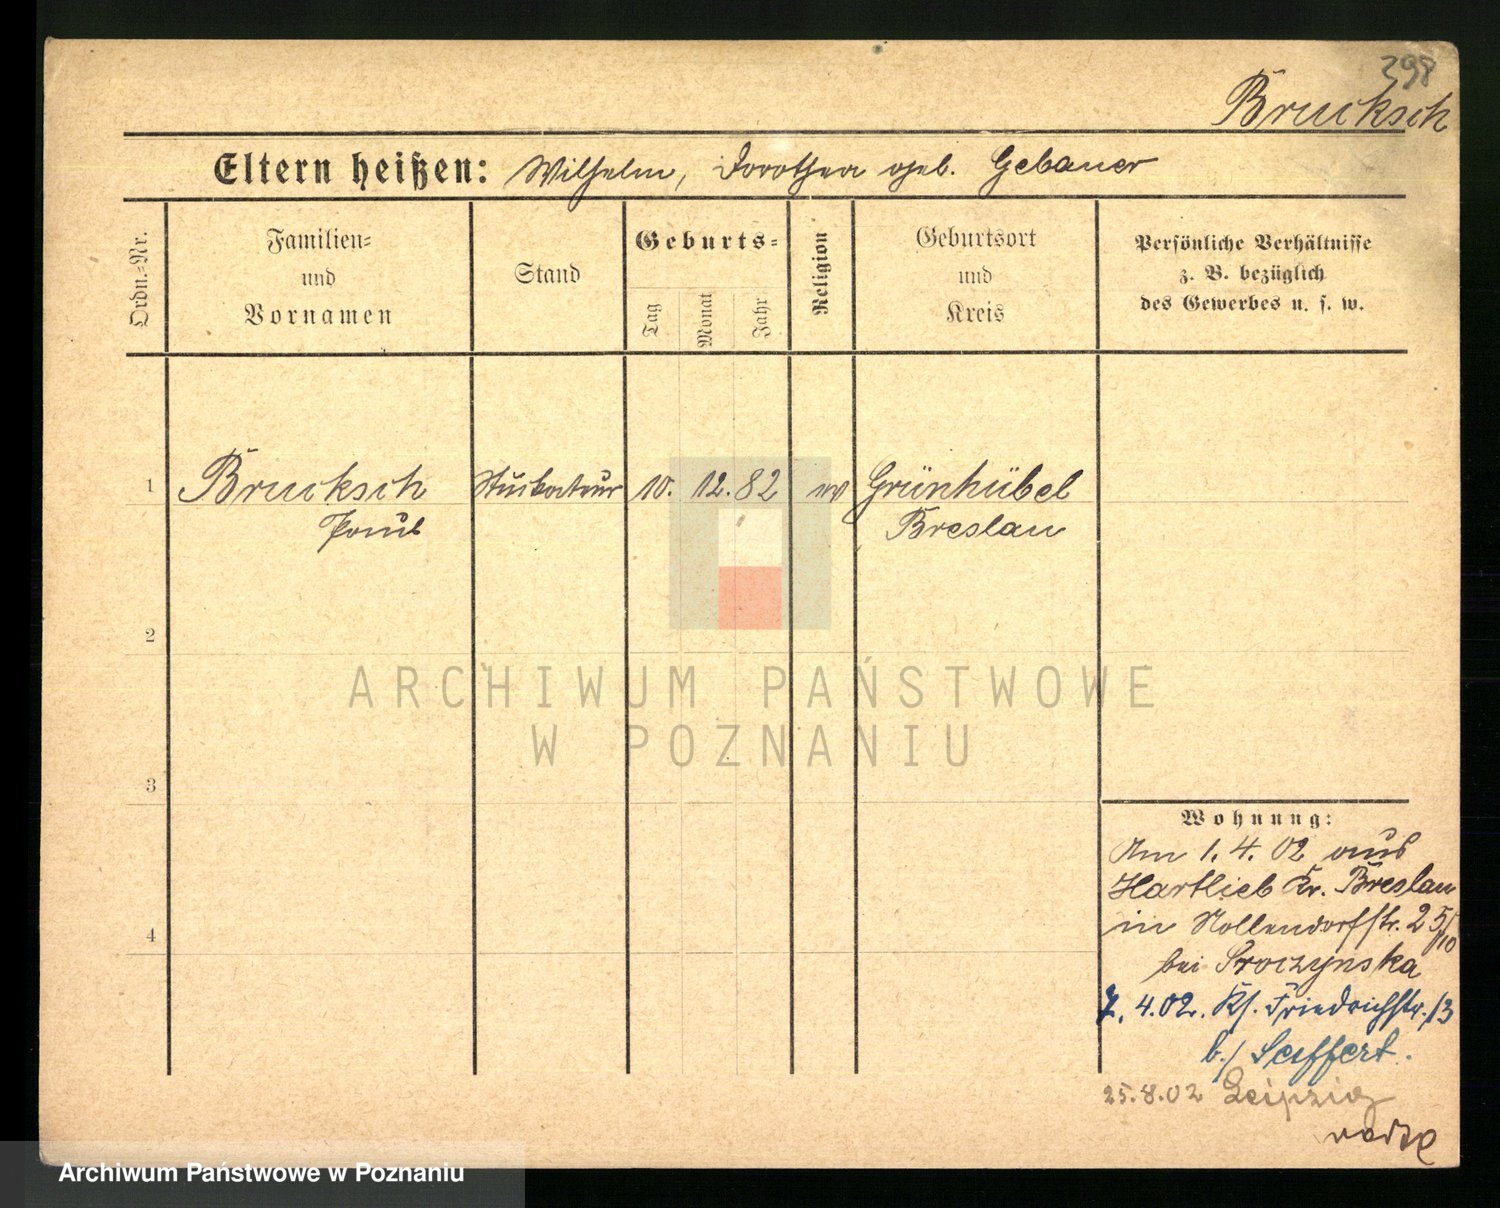 398
Brucksch
Eltern heißen: Wilhelm, Dorothea geb. Gebauer
Ordn.=Nr.
Familien=
und
Vornamen
Stand
Geburts=
Tag
Monat
Jahr
Religion
Geburtsort
und
Kreis
Persönliche Verhältnisse
z. B. bezüglich
des Gewerbes u. s. w.
1 Brucksch Stuckateur 10. 12. 82 ev Grünhübel
Paul Breslau
2
ARCHIWUM PAŃSTWOWE
W POZNANIU
3
Wohnung:
Am 1. 4. 02 aus
Hartlieb Kr. Breslau
4
in Nollendorfstr. 25/10
bei Sroczynska
7. 4. 02. Ks. Friedrichstr. 13
b./ Seiffert.
25.8.02 Leipzig
Archiwum Państwowe w Poznaniu